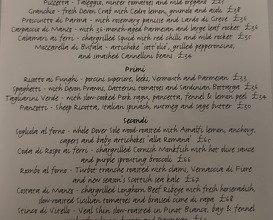 Pizzetta - Taleggio, winter tomatoes and wild oregano £27
Granchio - fresh Devon Crab with Cedro lemon, puntarelle and aioli £38
Prosciutto di Parma - with rosemary panisse and Lardo di Greve £36
Carpaccio di Manzo - with 36-month-aged Parmesan and large leaf rocket £36
Calamari ai ferri - chargrilled Squid with red chilli and wild rocket £35
Mozzarella di Bufala - artichoke 'sott'olio', grilled pepperoncine,
and smashed Cannellini beans £34
Primi
Risotto ai Funghi - porcini superiore, leeks, Vermouth and Parmesan £33
Spaghetti - with Devon Prawns, Datterini tomatoes and Sardinian Bottarga £36
Tagliarini Verde - with slow-cooked Pork ragu, pancetta, fennel & lemon peel £34
Panzotti - Sheep Ricotta, Italian spinach, nutmeg and sage butter £32
Secondi
Sogliola al forno - whole Dover Sole wood-roasted with Amalfi lemon, anchovy,
capers and baby artichokes 'alla Romana' £67
Coda di Rospo ai ferri - chargrilled Cornish Monkfish with hot olive sauce
and purple sprouting broccoli £66
Rombo al forno - Turbot tranche roasted with clams, Vernaccia di Fiore
and new season's Scottish sea kale £62
Costata di Manzo - chargrilled Longhorn Beef Ribeye with fresh horseradish,
slow-roasted Sicilian tomatoes and braised cime di rapa £68
Stinco di Vitello - Veal Shin slow-roasted in Pinot Bianco, bay & fennel